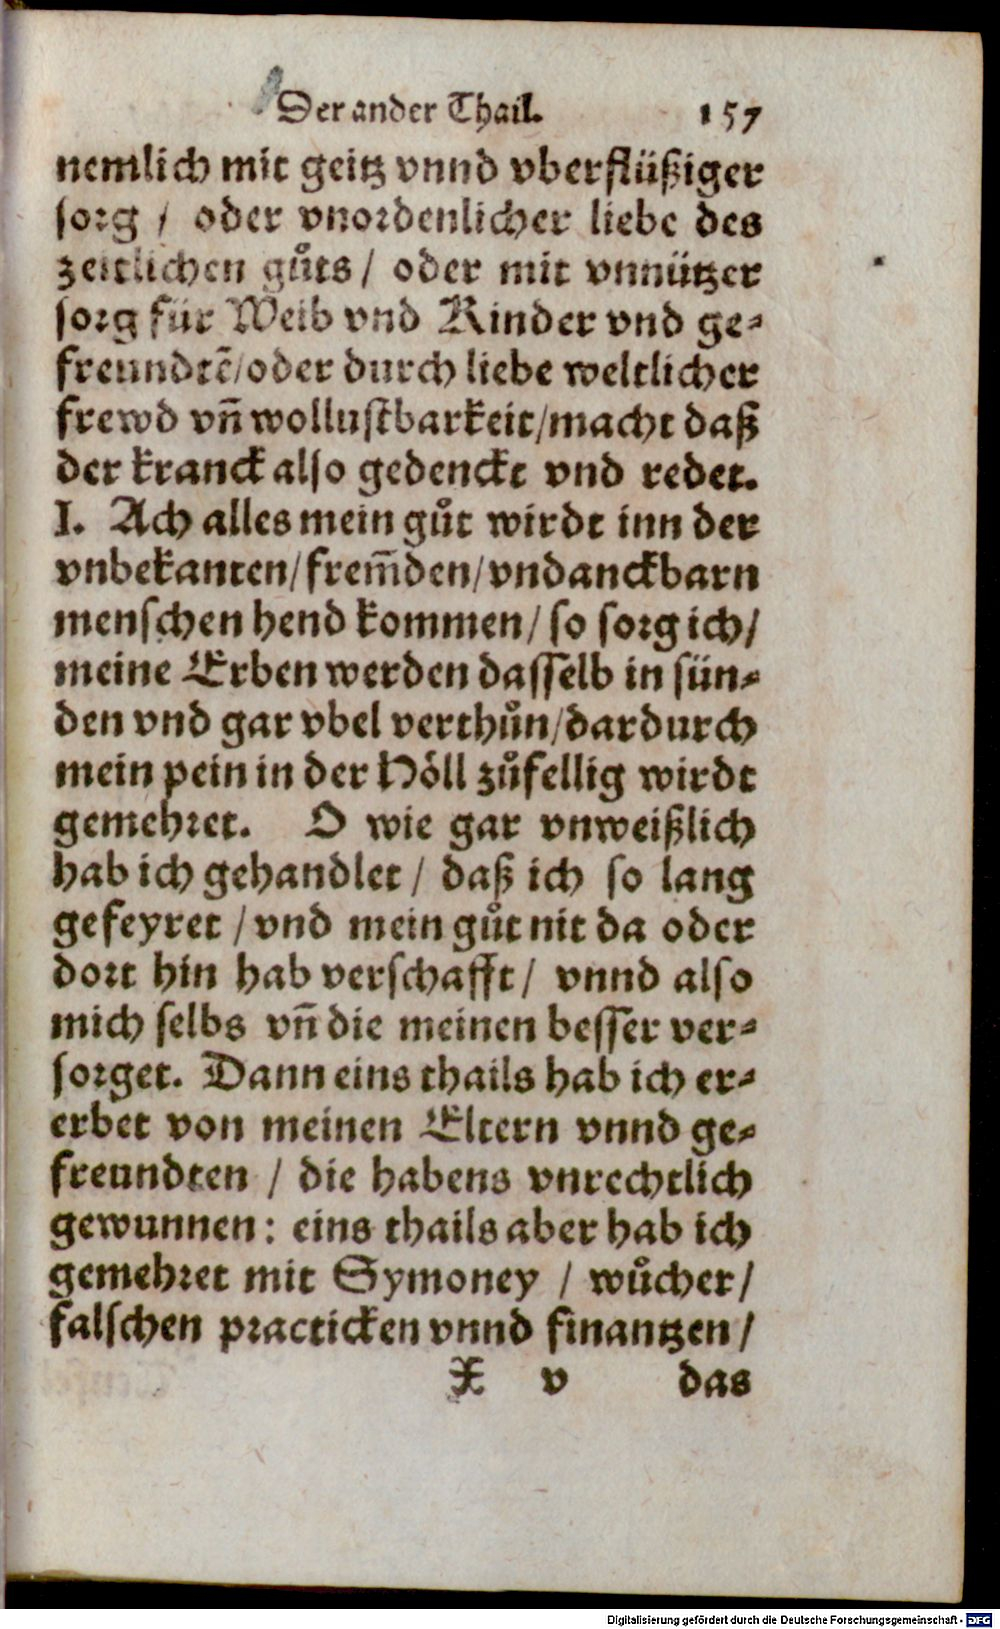 Der ander Thail. 157
nemlich mit geitz vnnd vberflüßiger
sorg / oder vnordenlicher liebe des
zeitlichen gůts / oder mit vnnützer
sorg für Weib vnd Kinder vnd ge⸗
freundtē / oder durch liebe weltlicher
frewd vñ wollustbarkeit / macht daß
der kranck also gedenckt vnd redet.
I. Ach alles mein gůt wirdt inn der
vnbekanten / frem̃den / vndanckbarn
menschen hend kommen / so sorg ich /
meine Erben werden dasselb in sün⸗
den vnd gar vbel verthůn / dardurch
mein pein in der Höll zůfellig wirdt
gemehret. O wie gar vnweißlich
hab ich gehandlet / daß ich so lang
gefeyret / vnd mein gůt nit da oder
dort hin hab verschafft / vnnd also
mich selbs vñ die meinen besser ver⸗
sorget. Dann eins thails hab ich er⸗
erbet von meinen Eltern vnnd ge⸗
freundten / die habens vnrechtlich
gewunnen : eins thails aber hab ich
gemehret mit Symoney / wůcher /
falschen practicken vnnd finantzen /
X v das
Digitalisierung gefördert durch die Deutsche Forschungsgemeinschaft - DFG